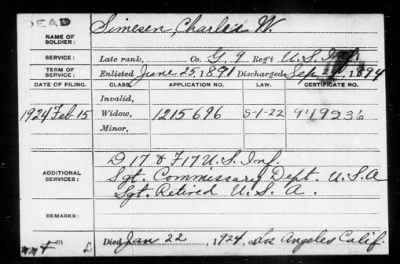 DEAD
Simesen, Charles W.
NAME OF SOLDIER:
SERVICE: Late rank, Co. G, 9 Reg't U.S. Inf.
TERM OF SERVICE: Enlisted June 25, 1891 Discharged Sep 1894
DATE OF FILING. CLASS. APPLICATION NO. LAW. CERTIFICATE NO.
Invalid,
1924 Feb-15 Widow, 1215696 5-1-22
Minor,
D 17 & F 17 U.S. Inf.
ADDITIONAL SERVICES: Sgt. Commissary Dept. U.S.A
Sgt. Retired U.S.A.
REMARKS:
Died Jan 22, 1924, Los Angeles Calif.